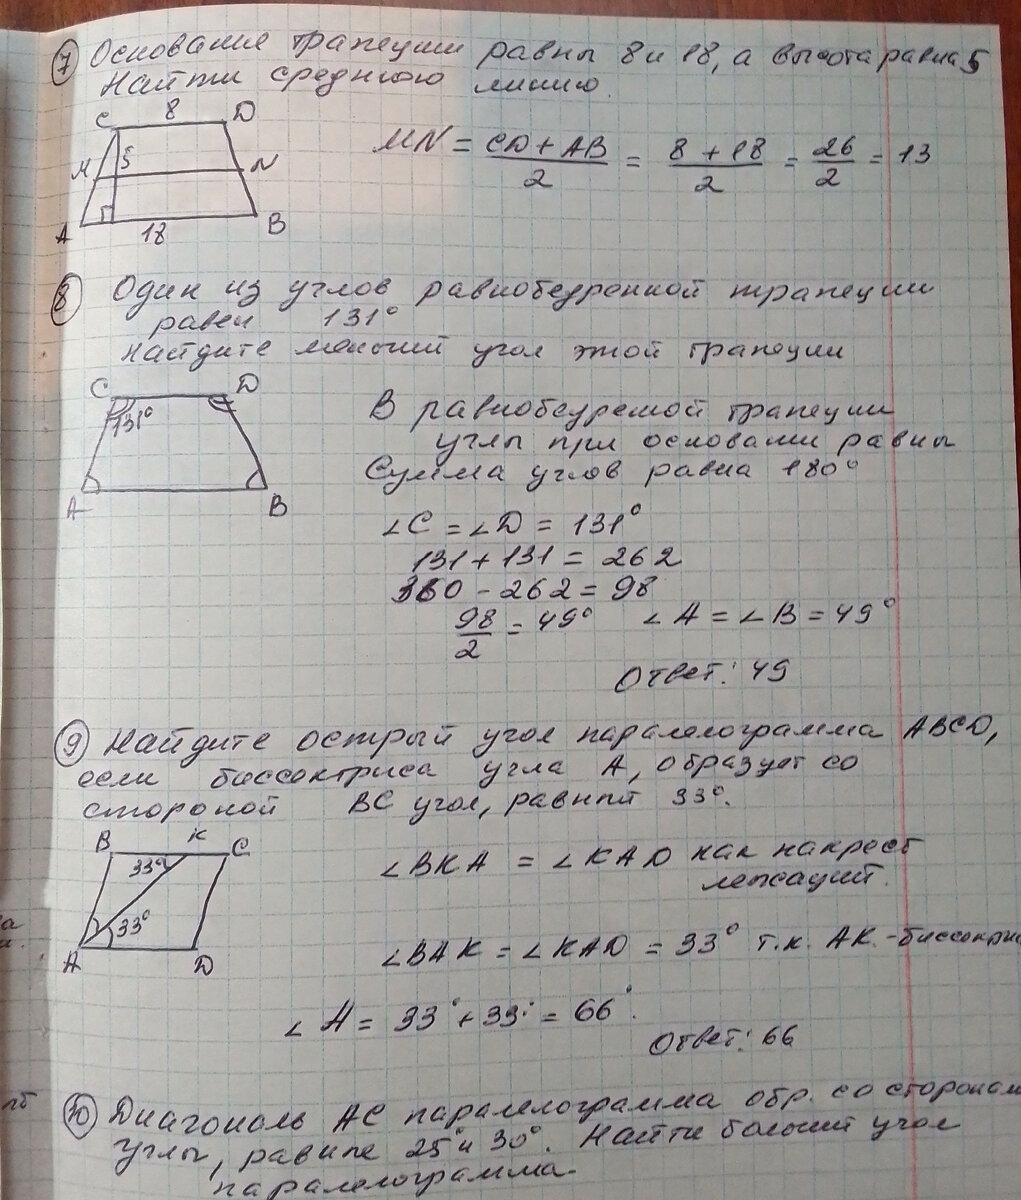 7 Основания трапеции равны 8 и 18, а высота равна 5
Найти среднюю линию.
C 8 D
M 5 N
A 18 B
MN = (CD + AB)/2 = (8 + 18)/2 = 26/2 = 13
8 Один из углов равнобедренной трапеции
равен 131°
Найдите меньший угол этой трапеции
C D
131°
A B
В равнобедреной трапеции
углы при основании равны
Сумма углов равна 180°
∠C = ∠D = 131°
131 + 131 = 262
360 - 262 = 98
98/2 = 49° ∠A = ∠B = 49°
Ответ: 49
9 Найдите острый угол паралелограмма ABCD,
если биссектриса угла A, образует со
стороной BC угол, равный 33°.
B K C
33°
33°
A D
∠BKA = ∠KAD как накрест
лежащий.
∠BAK = ∠KAD = 33° т.к. AK -биссектрис
∠A = 33° + 33° = 66°.
Ответ: 66
10 Диагональ AC паралелограмма обр. со сторонам
углы, равные 25° и 30°. Найти больший угол
паралелограмма.